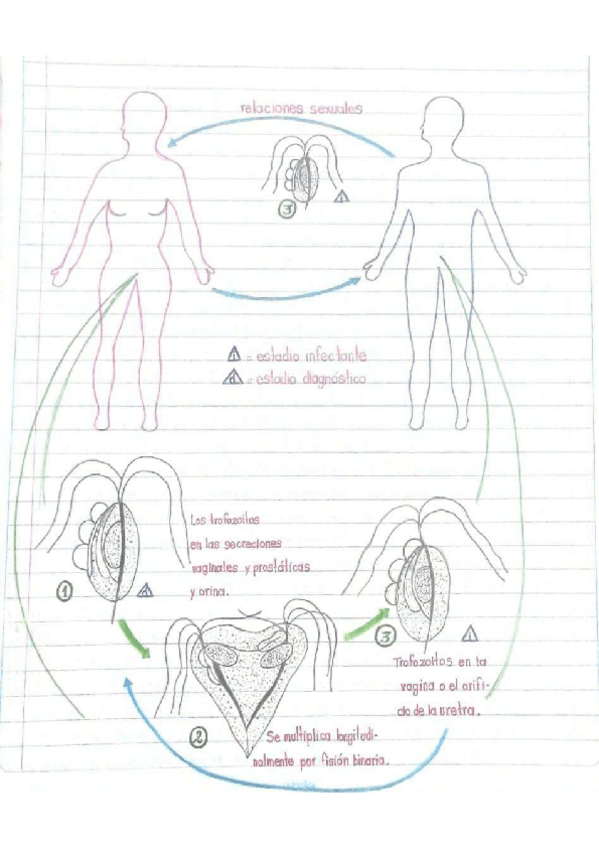 relaciones sexuales
3
i
i = estadio infectante
d = estadio diagnóstico
Los trofozoitos
en las secreciones
vaginales y prostáticas
y orina.
1
d
3
i
Trofozoitos en la
vagina o el orifi-
cio de la uretra.
2
Se multiplica longitudi-
nalmente por fisión binaria.